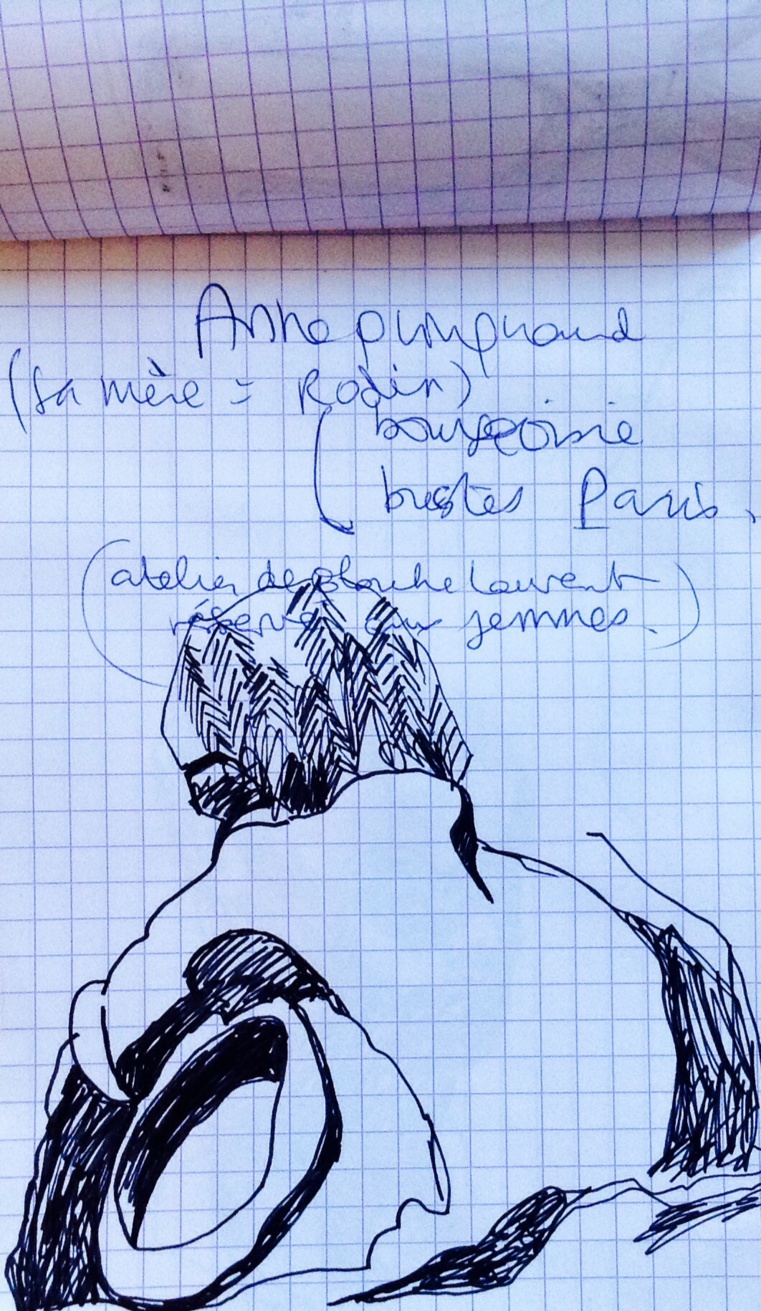 Anne pingeaud
(sa mère = Rodin)
bourgeoisie
bustes Paris.
(atelier de Blanche Laurent
réservé aux femmes.)